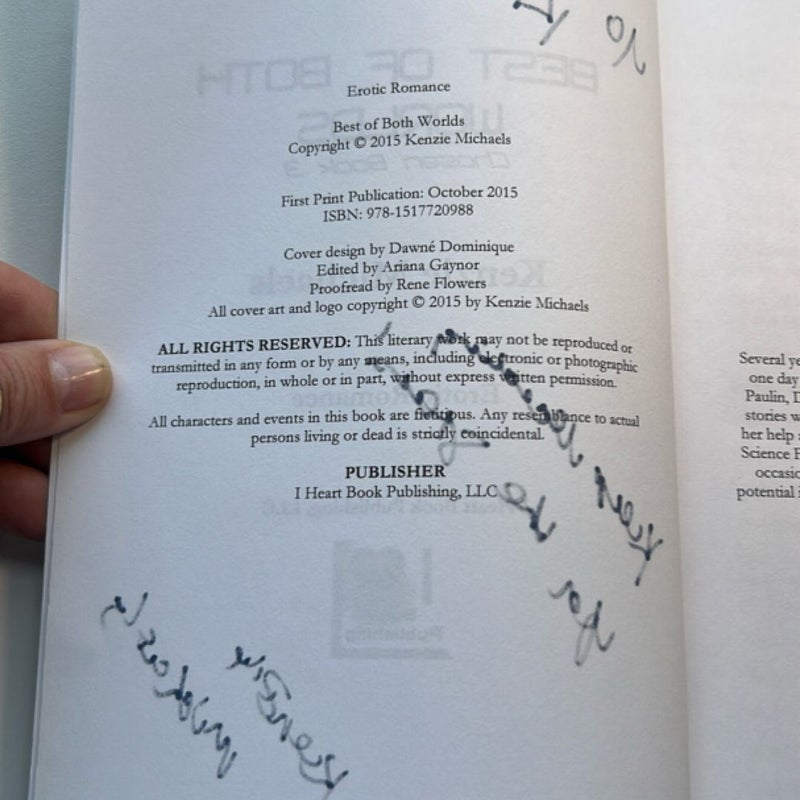 Erotic Romance
Best of Both Worlds
Copyright © 2015 Kenzie Michaels
First Print Publication: October 2015
ISBN: 978-1517720988
Cover design by Dawné Dominique
Edited by Ariana Gaynor
Proofread by Rene Flowers
All cover art and logo copyright © 2015 by Kenzie Michaels
ALL RIGHTS RESERVED: This literary work may not be reproduced or
transmitted in any form or by any means, including electronic or photographic
reproduction, in whole or in part, without express written permission.
All characters and events in this book are fictitious. Any resemblance to actual
persons living or dead is strictly coincidental.
PUBLISHER
I Heart Book Publishing, LLC
BEST OF BOTH
WORLDS
Chosen Book 3
Kenzie Michaels
Erotic Romance
I Heart Book Publishing LLC
Publishing
Kenzie
Michaels
Several
one day
Paulin,
stories
her help
Science
potential